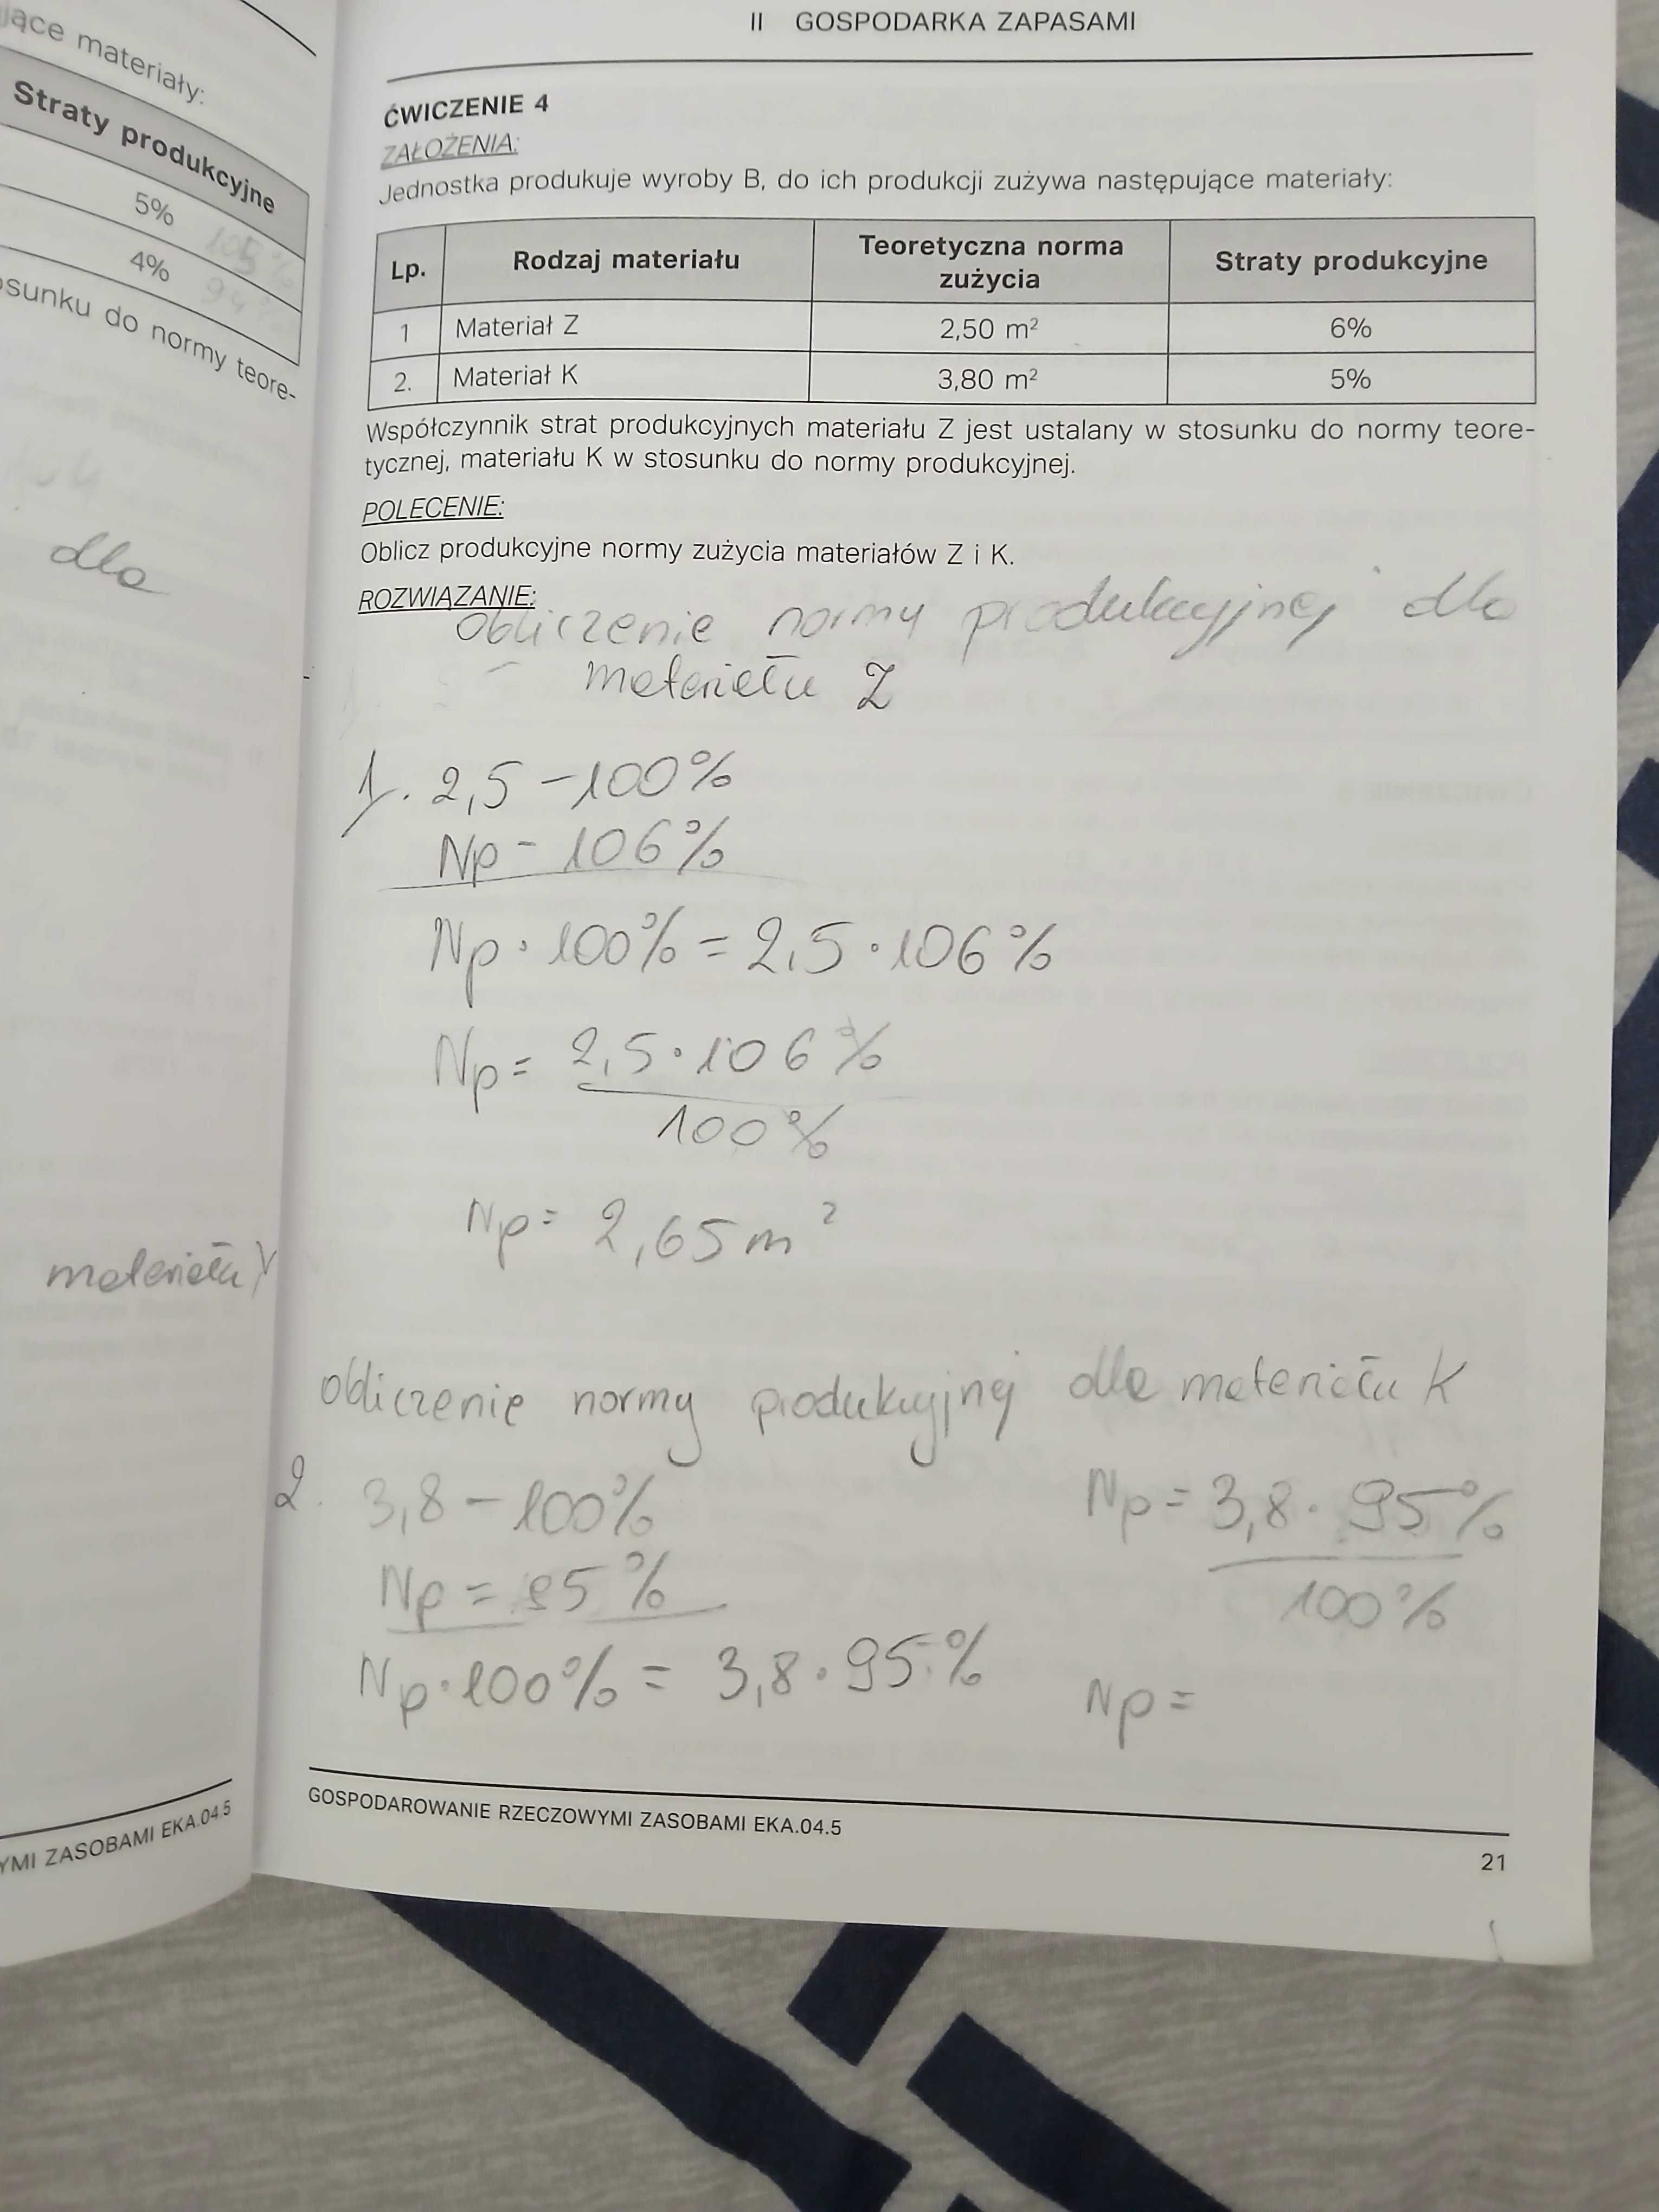 jące materiały:
Straty produkcyjne
5% 105%
4% 94%
osunku do normy teore-
dla
materiału Y
YMI ZASOBAMI EKA.04.5
II GOSPODARKA ZAPASAMI
ĆWICZENIE 4
ZAŁOŻENIA:
Jednostka produkuje wyroby B, do ich produkcji zużywa następujące materiały:
Lp. Rodzaj materiału Teoretyczna norma zużycia Straty produkcyjne
1 Materiał Z 2,50 m² 6%
2. Materiał K 3,80 m² 5%
Współczynnik strat produkcyjnych materiału Z jest ustalany w stosunku do normy teore-
tycznej, materiału K w stosunku do normy produkcyjnej.
POLECENIE:
Oblicz produkcyjne normy zużycia materiałów Z i K.
ROZWIĄZANIE:
obliczenie normy produkcyjnej dla
materiału Z
1. 2,5 - 100%
Np - 106%
Np · 100% = 2,5 · 106%
Np = 2,5 · 106%
100%
Np = 2,65 m²
obliczenie normy produkcyjnej dla materiału K
2. 3,8 - 100%
Np = 95%
Np · 100% = 3,8 · 95%
Np = 3,8 · 95%
100%
Np =
GOSPODAROWANIE RZECZOWYMI ZASOBAMI EKA.04.5
21